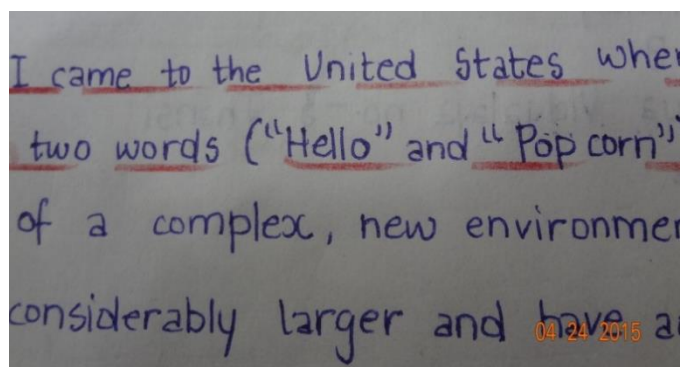 I came to the United States when
two words ("Hello" and "Pop corn")
of a complex, new environmen
considerably larger and have a
04 24 2015